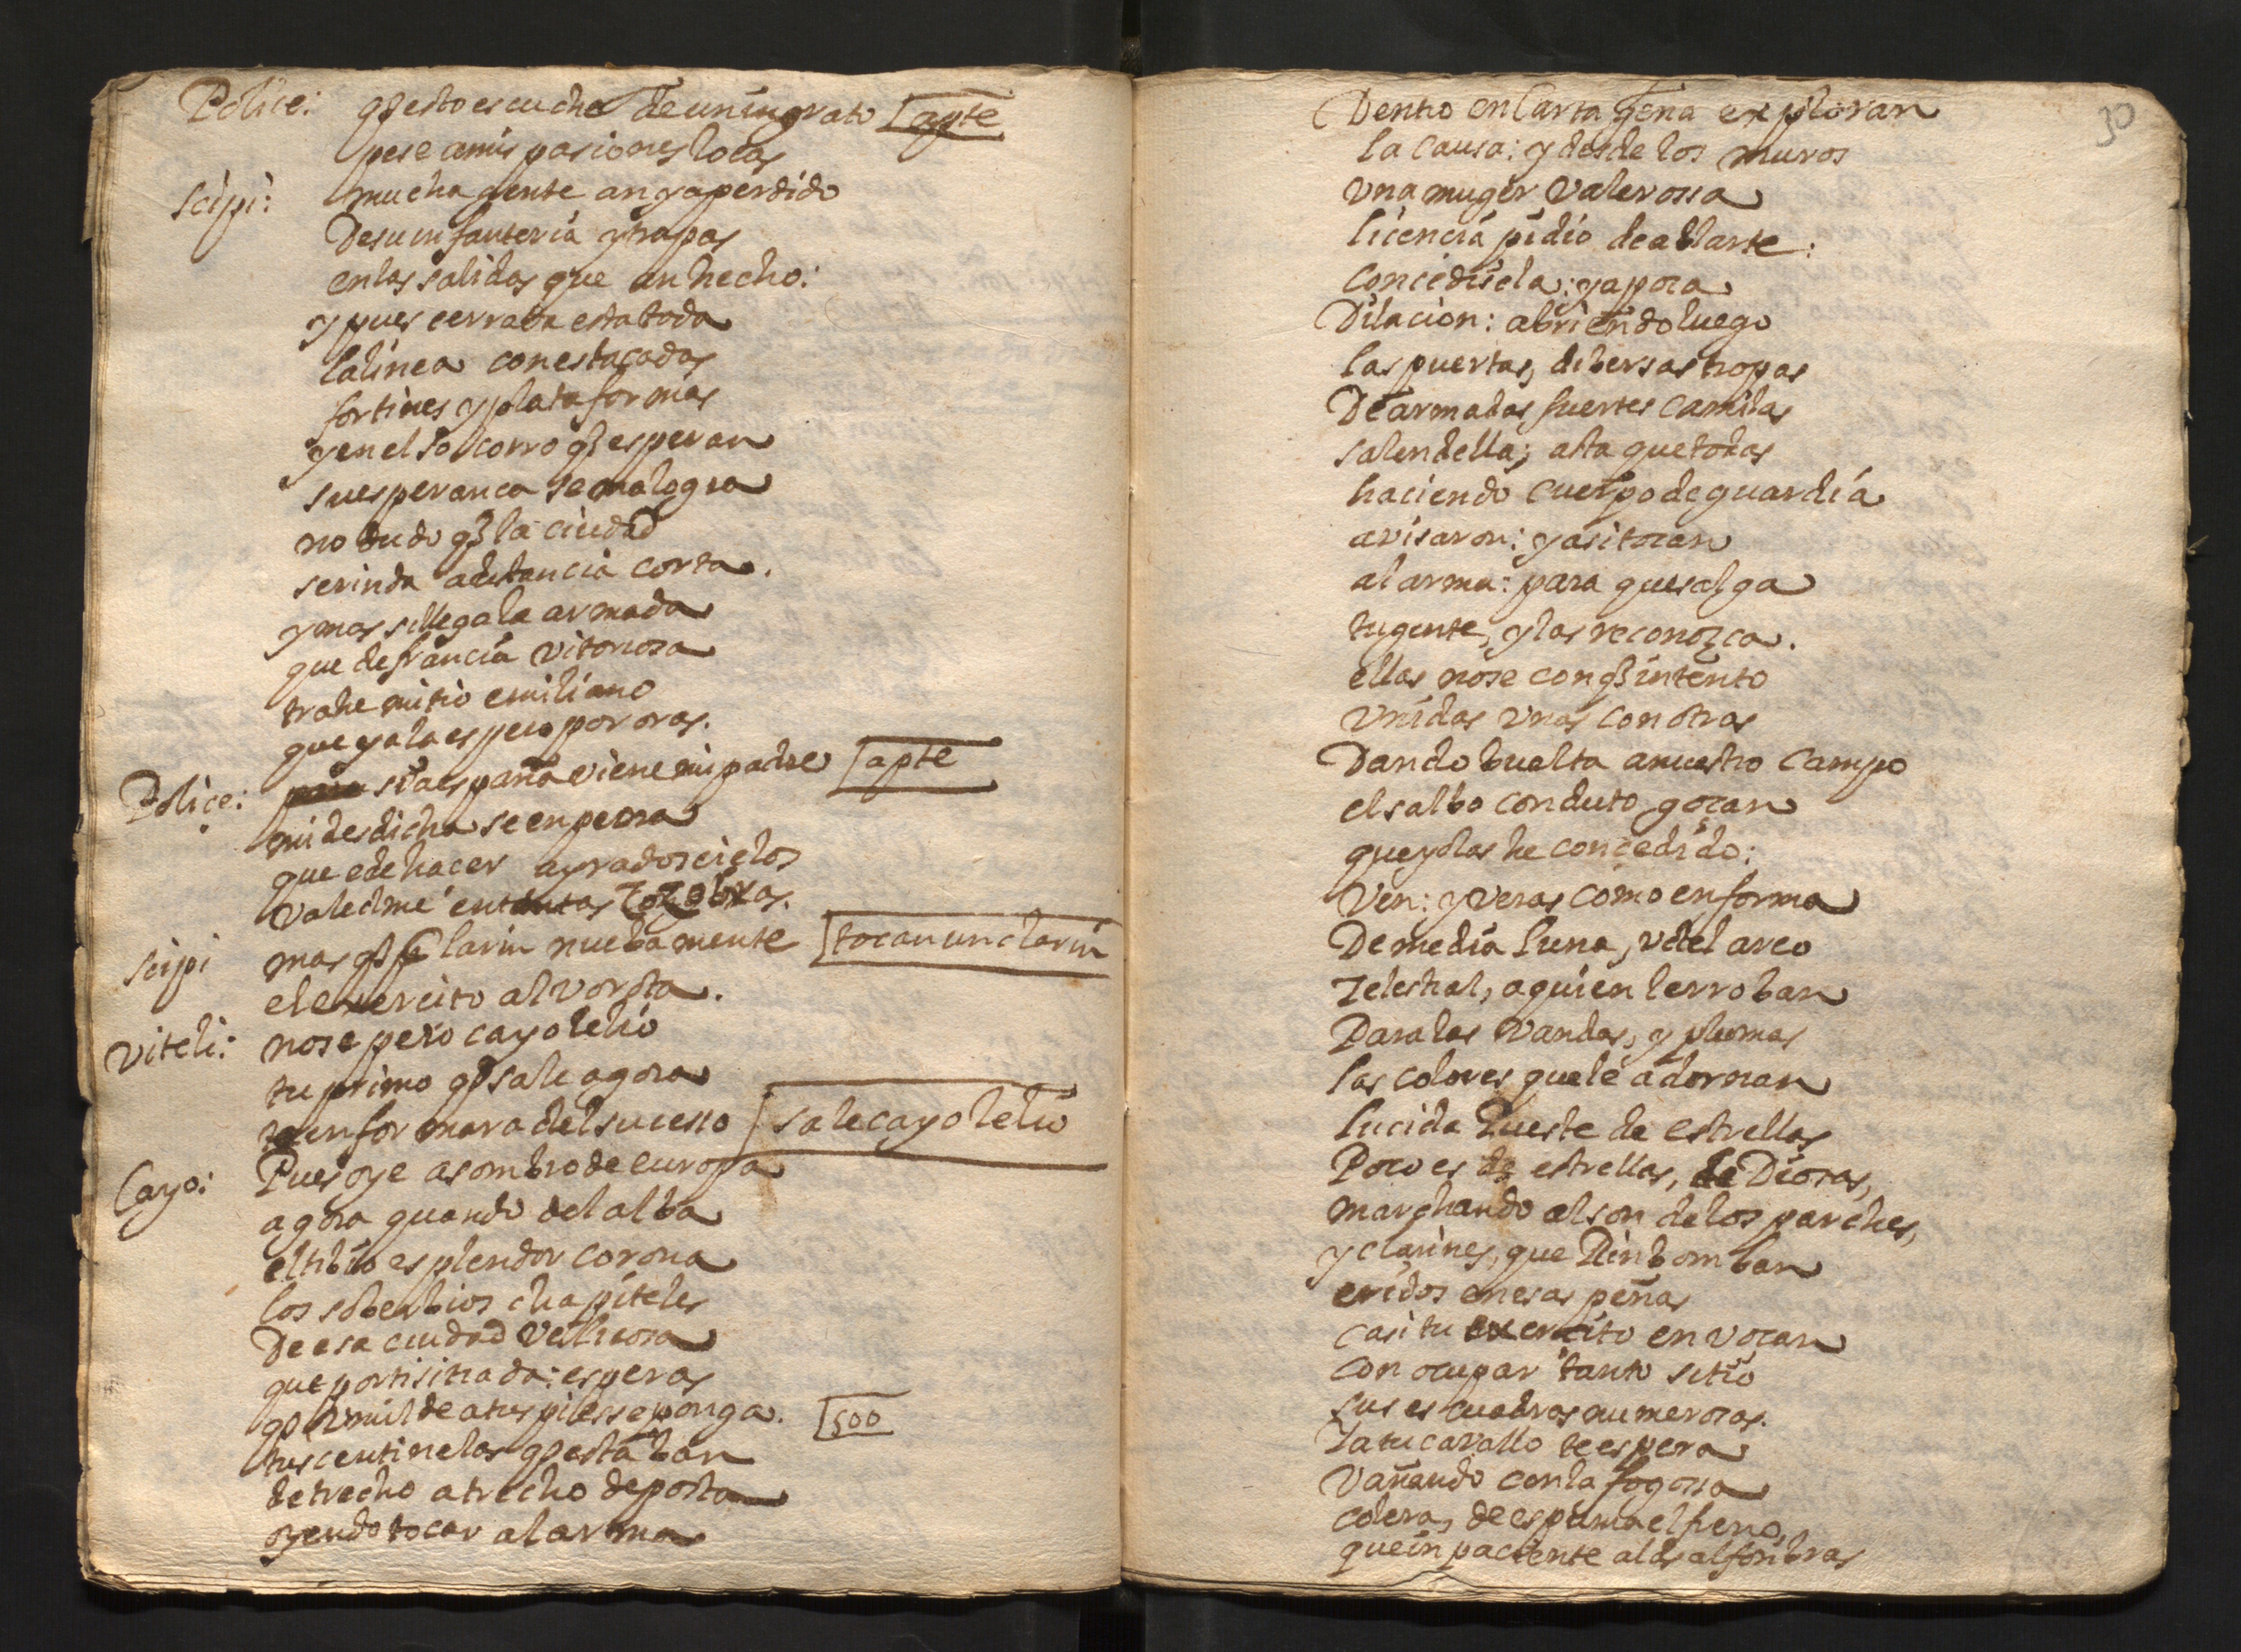 Police: q̃ esto escuche de un ingrato [apte
pese a mis pasiones locas
scipi: mucha gente an ya perdido
De su infanteria y tropas
en las salidas que an hecho:
y pues cerrada esta toda
la linea con estacadas
fortines y plataformas
y en el socorro q̃ esperan
su esperanca se malogra
no dudo q̃ la ciudad
se rinda a distancia corta.
y mas si llega la armada
que de francia vitoriosa
trahe mi tio emiliano
que ya la espero por oras.
Police: si a españa viene mi padre [apte
mi desdicha se enpeora
que e de hacer ayrados cielos
valedme en tantas Zozobras.
scipi mas q̃ clarin nuebamente [tocan un clarin
el exercito alvorota.
viteli: no se pero cayo lelio
tu primo q̃ sale agora
te informara del sucesso [sale cayo lelio
Cayo: Pues oye asombro de europa
agora quando del alba
el tibio esplendor corona
los soberbios chapiteles
De esa ciudad Velicosa
que por ti sitiada: esperas
q̃ umilde a tus pies se ponga. [500
tus centinelas q̃ estaban
de trecho a trecho de posta
oyendo tocar al arma
30
Dentro en Cartagena exploran
la causa: y desde los muros
vna muger valerossa
licencia pidio de ablarte:
concedisela: y a poca
Dilacion: abriendo luego
las puertas, dibersas tropas
De armadas fuertes Camilas
salen della; asta que todas
haciendo cuerpo de guardia
avisaron: y asi tocan
al arma: para que salga
tu gente, y las reconozca.
ellas no se con q̃ intento
Vnidas vnas con otras
Dando buelta a nuestro Campo
el salbo conduto gozan
que yo las he concedido:
Ven: y veras como en forma
De media luna, v del arco
Zelestial, a quien le rroban
Para las vandas, y plumas
las colores que le adornan
lucida Hueste de estrellas
Poco es de estrellas, de Diosas,
marchando al son de los parches,
y clarines, que Rinbomban
eridos en esas peñas
casi tu exercito en vocan
con ocupar tanto sitio
sus escuadras numerosas.
Ya tu cavallo te espera
Vañando con la fogossa
colera, de espuma el freno,
que inpaciente a las alfonbras